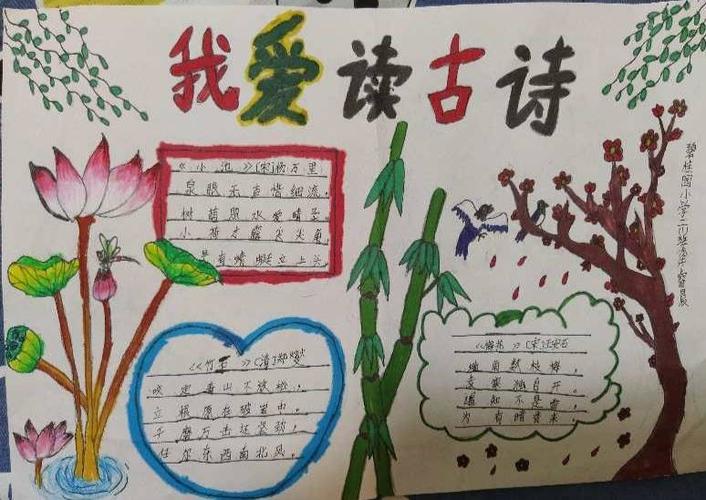 我爱读古诗
《小池》(宋)杨万里
泉眼无声惜细流,
树荫照水爱晴柔。
小荷才露尖尖角,
早有蜻蜓立上头
《竹石》(清)郑燮
咬定青山不放松,
立根原在破岩中。
千磨万击还坚劲,
任尔东西南北风。
《梅花》(宋)王安石
墙角数枝梅,
凌寒独自开。
遥知不是雪,
为有暗香来。
碧桂园小学